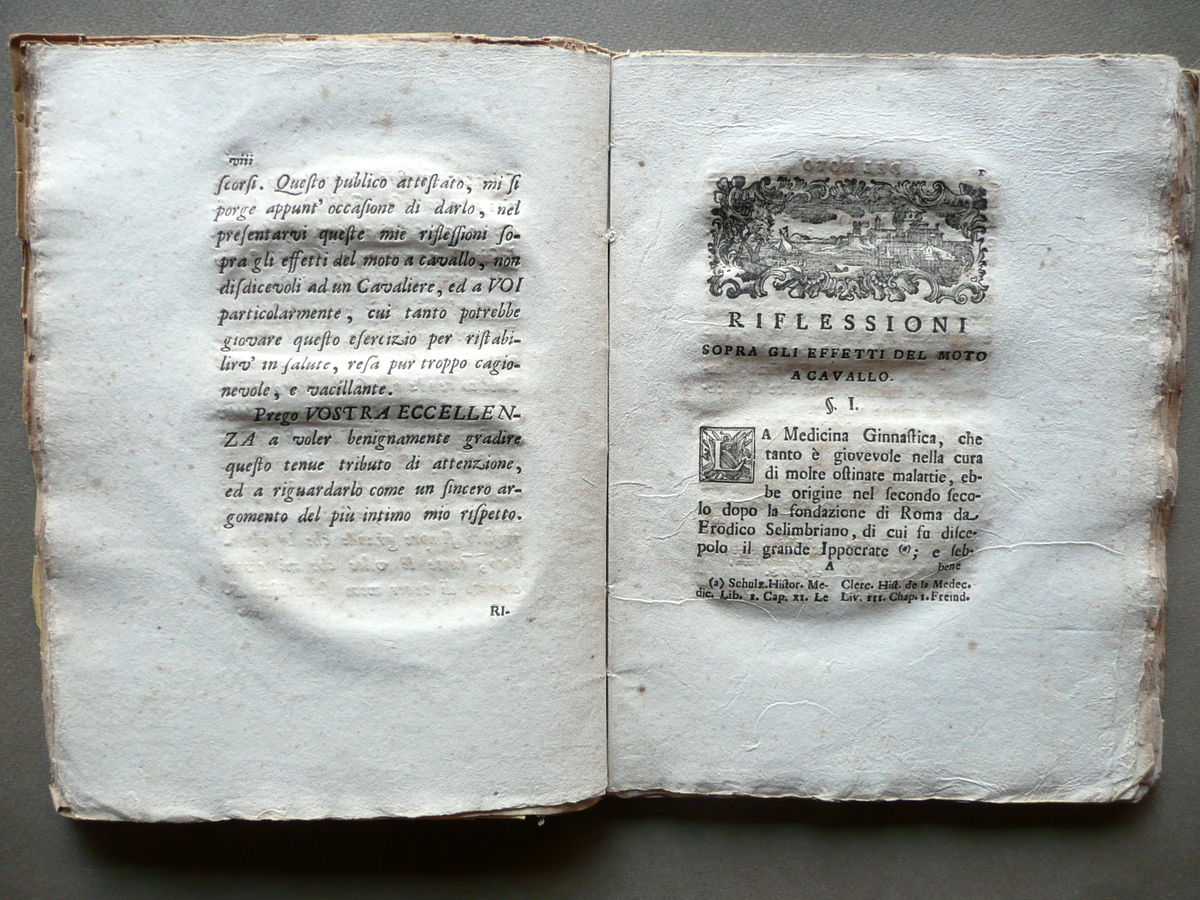 viii
ſcorſi. Queſto publico atteſtato, mi ſi
porge appunt' occaſione di darlo, nel
preſentarvi queſte mie rifleſſioni ſo-
pra gli effetti del moto a cavallo, non
diſdicevoli ad un Cavaliere, ed a VOI
particolarmente, cui tanto potrebbe
giovare queſto eſercizio per riſtabi-
lirv' in ſalute, reſa pur troppo cagio-
nevole, e vacillante.
Prego VOSTRA ECCELLEN-
ZA a voler benignamente gradire
queſto tenue tributo di attenzione,
ed a riguardarlo come un ſincero ar-
gomento del più intimo mio riſpetto.
RI-
RIFLESSIONI
SOPRA GLI EFFETTI DEL MOTO
A CAVALLO.
§. I.
LA Medicina Ginnaſtica, che
tanto è giovevole nella cura
di molte oſtinate malattie, eb-
be origine nel ſecondo ſeco-
lo dopo la fondazione di Roma da
Erodico Selimbriano, di cui fu diſce-
polo il grande Ippocrate (a); e ſeb-
A
bene
(a) Schulz. Hiſtor. Me-
dic. Lib. I. Cap. XI. Le
Clerc. Hiſt. de la Medec.
Liv. III. Chap. I. Freind.